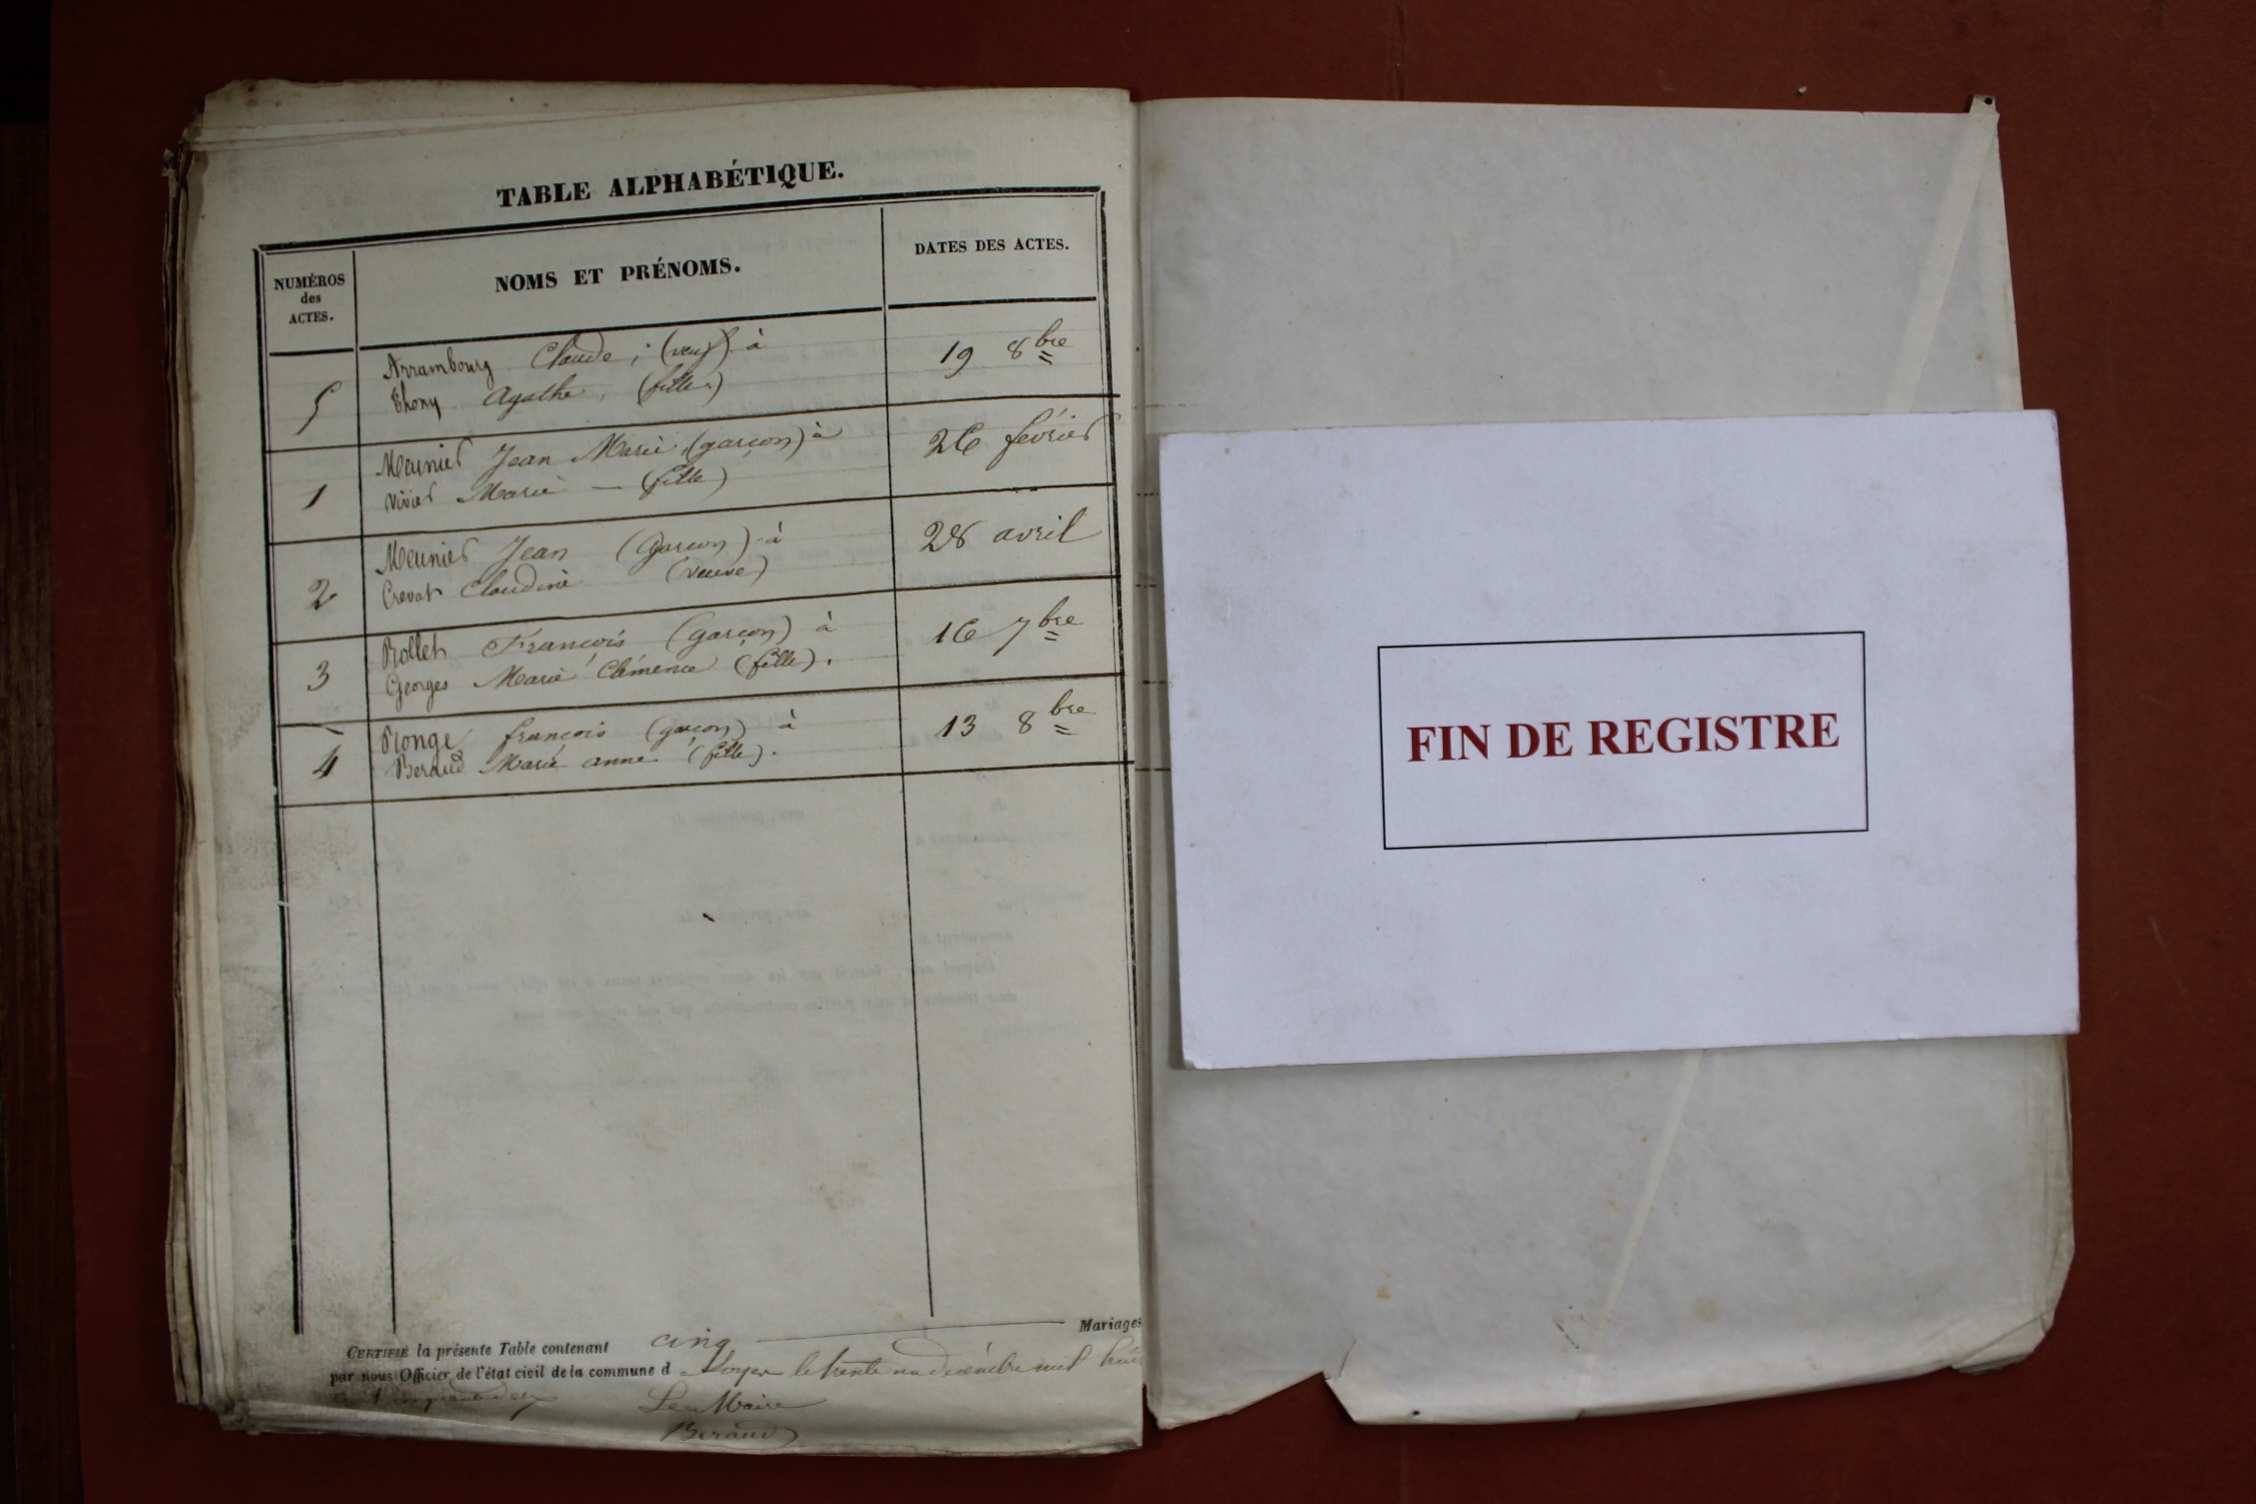 TABLE ALPHABÉTIQUE.
NUMÉROS
des
ACTES.
NOMS ET PRÉNOMS.
DATES DES ACTES.
5
Arrambourg Claude, (veuf) à
Thony Agathe, (fille)
19 8bre
1
Meunier Jean Marie (garçon) à
Vivier Marie — (fille)
26 février
2
Meunier Jean (Garçon) à
Crevat Claudine (veuve)
28 avril
3
Rollet François (garçon) à
Georges Marie Clémence (fille).
16 7bre
4
françois (garçon) à
Beraud Marie anne (fille).
13 8bre
CERTIFIÉ la présente Table contenant cinq Mariages
par nous Officier de l'état civil de la commune d le trente un décembre mil huit
Le Maire
Beraud
FIN DE REGISTRE